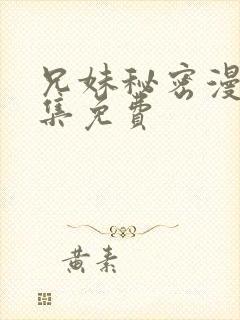 兄妹秘密漫
集免费
黄素